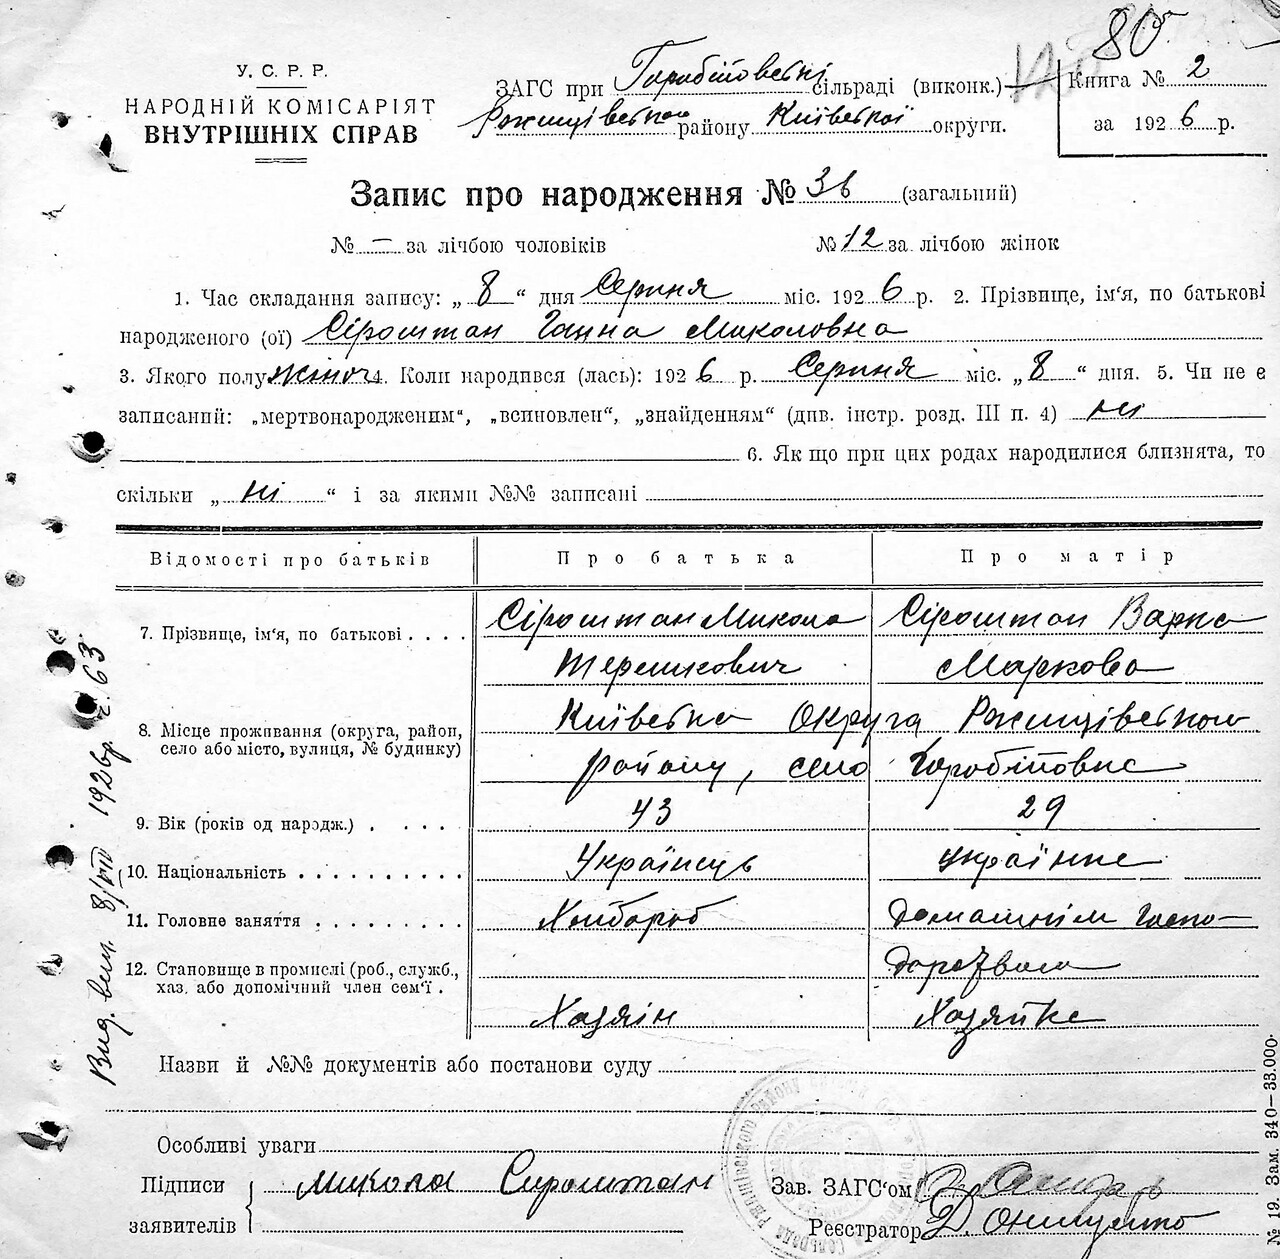 80
У. С. Р. Р.
НАРОДНІЙ КОМІСАРІЯТ
ВНУТРІШНІХ СПРАВ
ЗАГС при сільраді (виконк.)
району Київської округи.
Книга № 2
за 1926 р.
Запис про народження № 36 (загальний)
№ – за лічбою чоловіків № 12 за лічбою жінок
1. Час складання запису: „ 8 “ дня Серпня міс. 1926 р. 2. Прізвище, ім'я, по батькові
народженого (ої) Сіроштан Ганна Миколовна
3. Якого полу жіноч 4. Коли народився (лась): 1926 р. Серпня міс. „ 8 “ дня. 5. Чи не є
записаний: „мертвонародженим“, „всиновлен“, „знайденням“ (див. інстр. розд. III п. 4) ні
6. Як що при цих родах народилися близнята, то
скільки „ ні “ і за якими №№ записані
Відомості про батьків Про батька Про матір
7. Прізвище, ім'я, по батькові . . . . Сіроштан Микола Сіроштан Варка
Терешкович Маркова
8. Місце проживання (округа, район,
село або місто, вулиця, № будинку)
Київська Округа,
району, село
9. Вік (років од народж.) . . . . . 43 29
10. Національність . . . . . . . . . . Українець українка
11. Головне заняття . . . . . . . . . Хлібороб Домашнім госпо-
дарством
12. Становище в промислі (роб., служб.,
хаз. або допомічний член сем'ї .
Хазяїн Хазяйка
Назви й №№ документів або постанови суду
Особливі уваги
Підписи
заявителів
Микола Сироштан
Зав. ЗАГС'ом
Реєстратор Д Онищенко
Вид. вип. 8/VIII 1926р. г. 63
№ 19. Зам. 340—33.000.